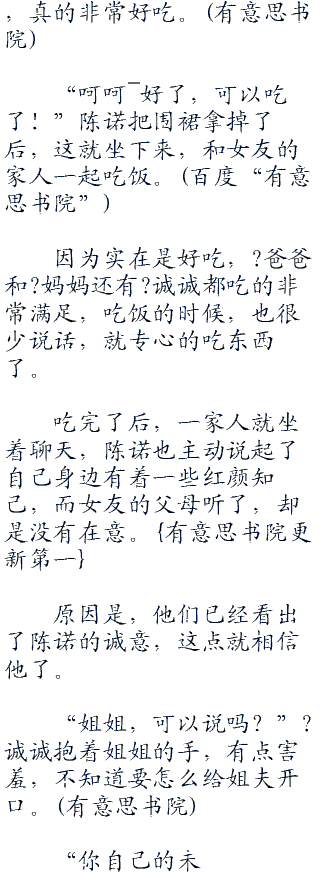 ，真的非常好吃。(有意思书
院)
“呵呵¯好了，可以吃
了！”陈诺把围裙拿掉了
后，这就坐下来，和女友的
家人一起吃饭。(百度“有意
思书院”)
因为实在是好吃，?爸爸
和?妈妈还有?诚诚都吃的非
常满足，吃饭的时候，也很
少说话，就专心的吃东西
了。
吃完了后，一家人就坐
着聊天，陈诺也主动说起了
自己身边有着一些红颜知
己，而女友的父母听了，却
是没有在意。{有意思书院更
新第一}
原因是，他们已经看出
了陈诺的诚意，这点就相信
他了。
“姐姐，可以说吗？”?
诚诚抱着姐姐的手，有点害
羞，不知道要怎么给姐夫开
口。(有意思书院)
“你自己的未